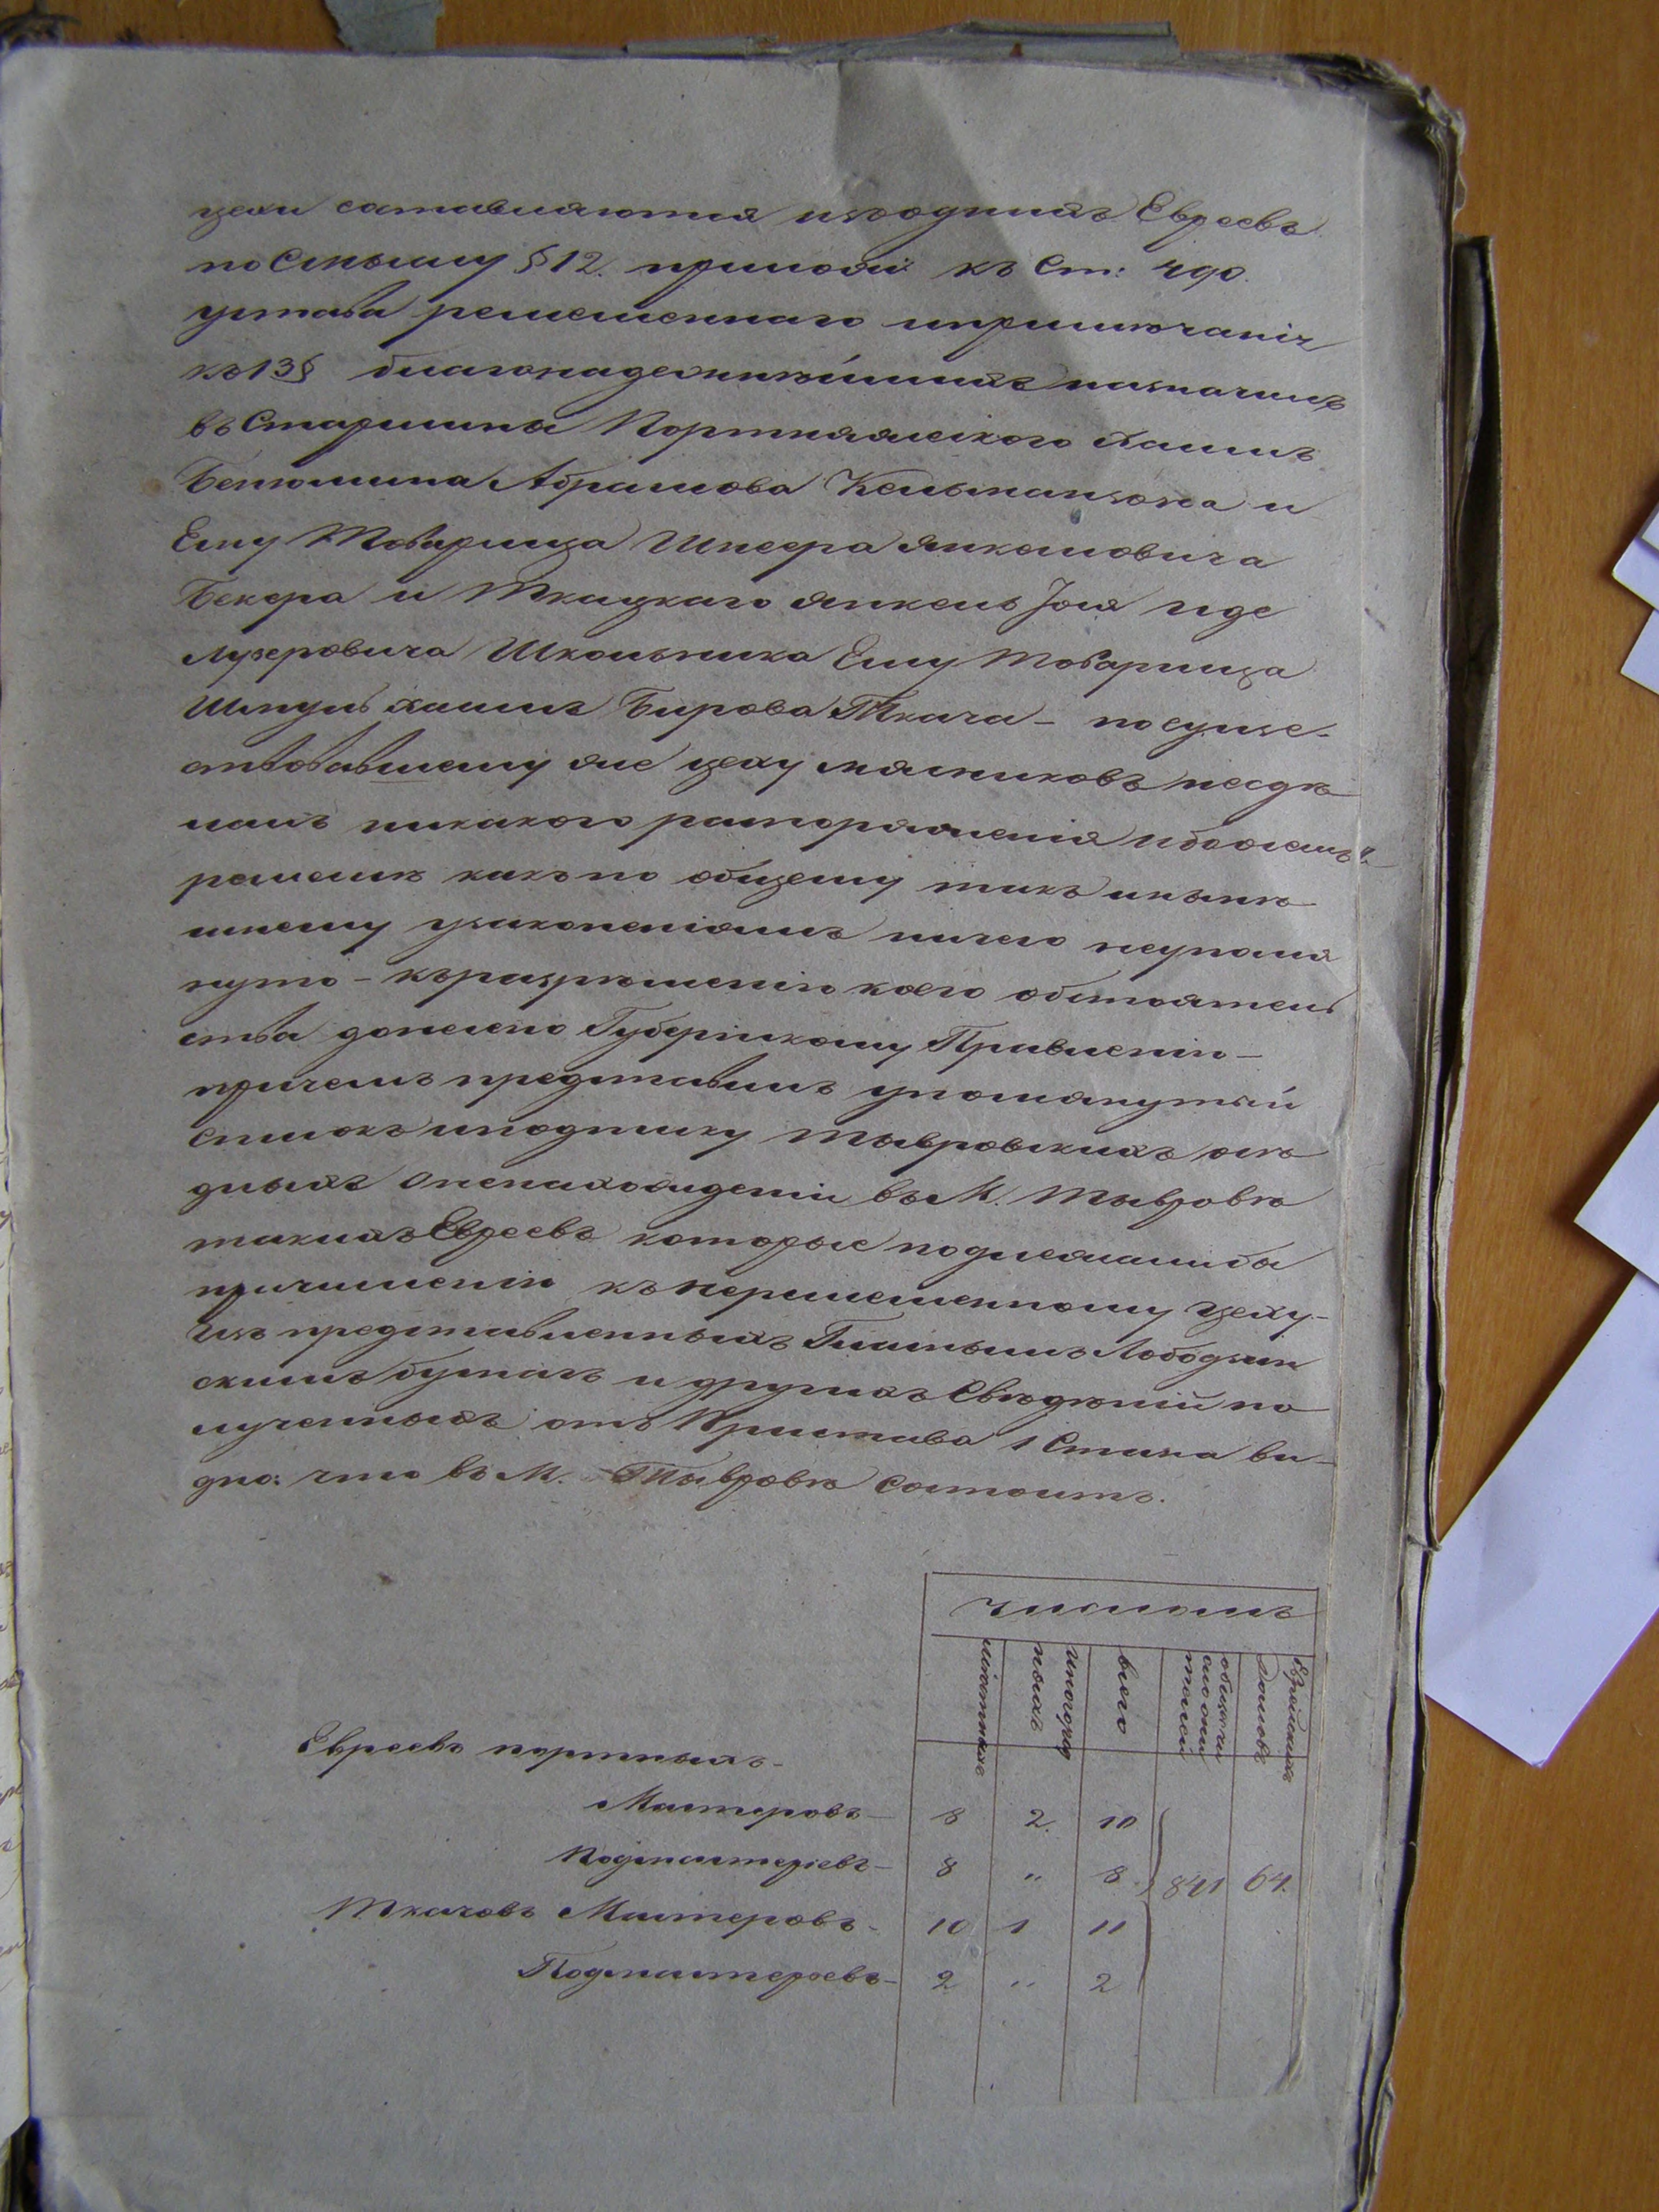 цехи составляются изъоднихъ Евреевъ
по Силѣ §12. прилож: къ Ст: 490.
устава ремесленнаго и примѣчанія
къ 13§ благонадежнѣйшихъ назначилъ
въ Старшины Портняжского Хаимъ
Бенюмина Абрамова Кельманзона и
Ему Товарища Шнеера Янкелевича
Бекера и Ткацкаго Янкель Іоля
Лузеровича Школьника Ему Товарища
Шмуль Хаимъ Бирова Ткача – по суще-
ствовавшему же цеху мясниковъ несдѣ
лалъ никакого распоряженія ибо о семъ
ремеслѣ какъ по общему такъ и нынѣ
шнему узаконеніямъ ничего неупомя
нуто – къ разрѣшенію коего обстоятель
ства донесено Губернскому Правленію –
причемъ представилъ упомянутый
списокъ и подписку Тывровскихъ
о ненахожденіи въ М. Тывровѣ
такихъ Евреевъ которые подлежали бы
причисленію къ неремесленному цеху –
Изъ представленныхъ Гласнымъ Лободзин
скимъ бумагъ и другихъ Свѣдѣній по
лученныхъ отъ Пристава 1 Стана ви-
дно: что въ М. Тывровѣ Состоитъ.
числомъ
мѣстныхъ
иногород
ныхъ
всего
обществ
Еврейскихъ
Домовъ
Евреевъ портныхъ –
Мастеровъ – 8 2. 10
Подмастерьевъ – 8 " 8 841 64.
Ткачовъ Мастеровъ – 10 1 11
Подмастерьевъ – 2 " 2